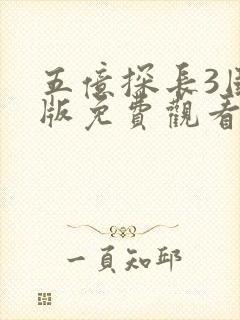 五億探長3國
版免費觀看
一頁知邱